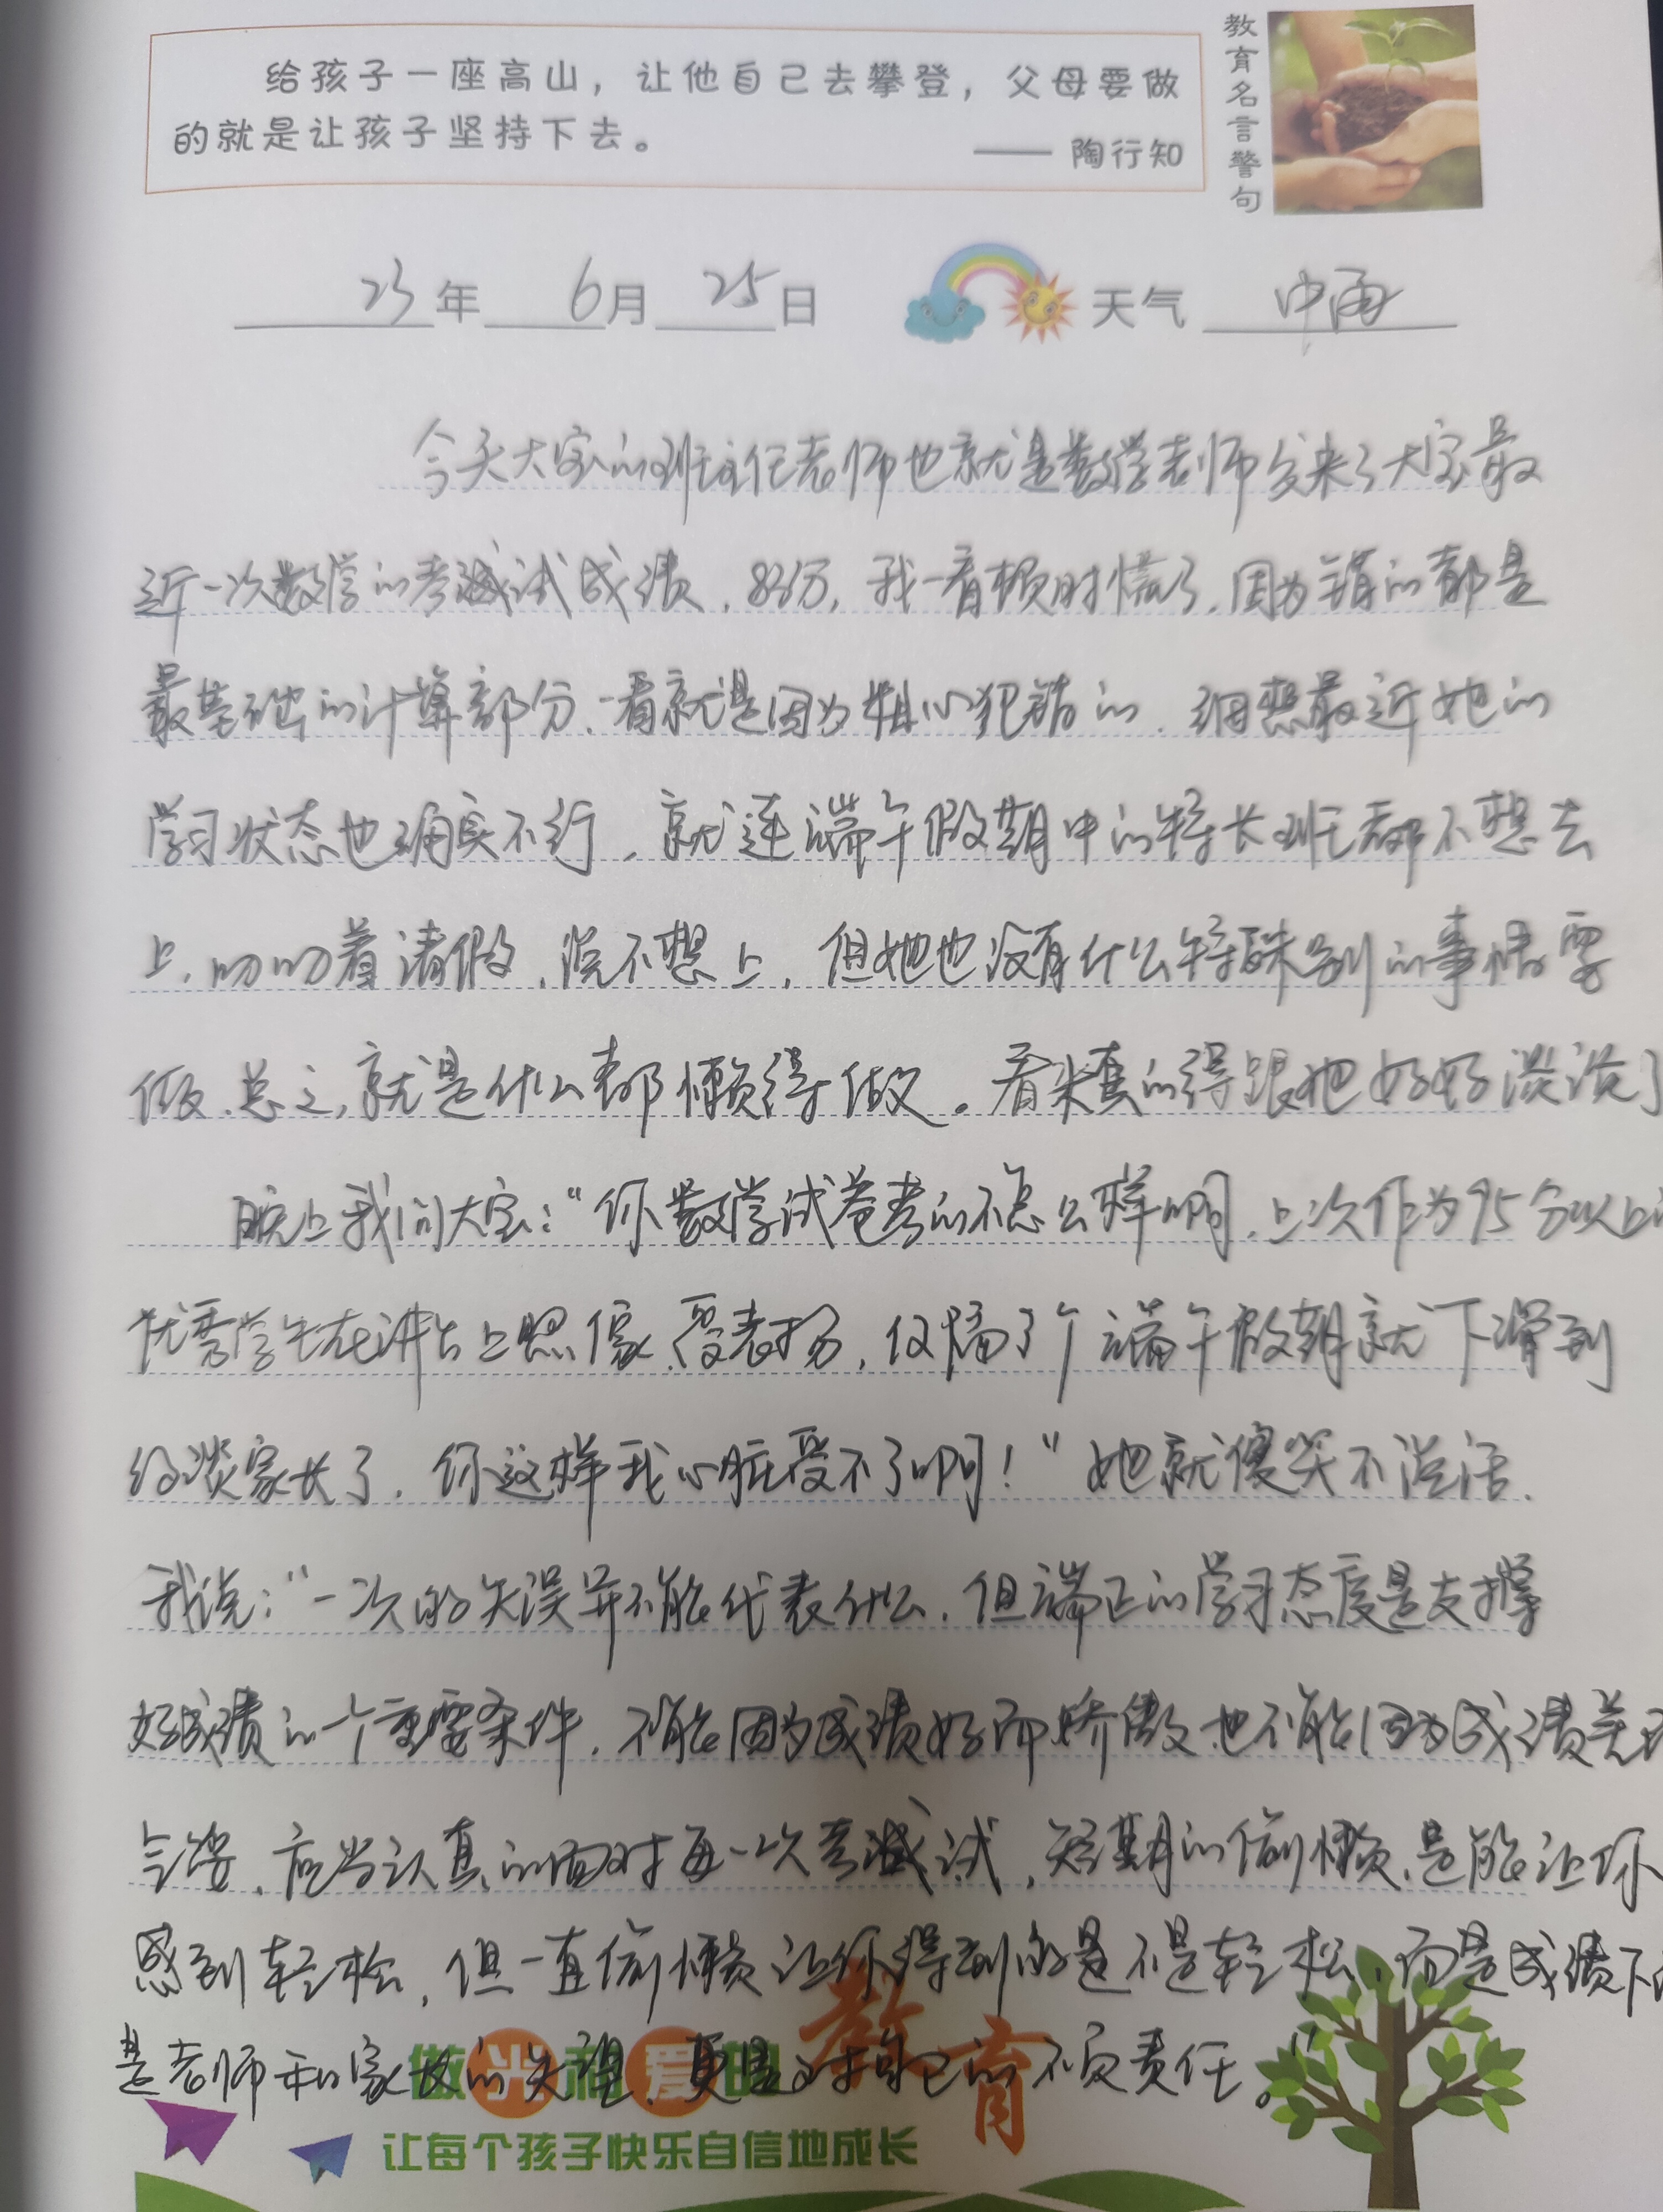 给孩子一座高山，让他自己去攀登，父母要做
的就是让孩子坚持下去。
—— 陶行知
教育名言警句
23年 6月 25日 天气 中雨
今天大宝的班主任老师也就是数学老师发来了大宝最
近一次数学的考试成绩，88分，我一看顿时慌了，因为错的都是
最基础的计算部分，一看就是因为粗心犯错的，细想最近她的
学习状态也确实不行，就连端午假期中的特长班都不想去
上，叨叨着请假，说不想上，但她也没有什么特别的事情要
做，总之，就是什么都懒得做。看来真的得跟她好好谈谈了
晚上我问大宝：“你数学试卷考的不怎么样啊，上次作为95分以上
优秀学生在讲台上照像，受表扬，仅隔了个端午假期就下滑到
约谈家长了，你这样我心脏受不了啊！”她就傻笑不说话．
我说：“一次的失误并不能代表什么，但端正的学习态度是支撑
好成绩的一个重要条件，不能因为成绩好而骄傲，也不能因为成绩差
气馁，应当认真的面对每一次考试，短期的偷懒，是能让你
感到轻松，但一直偷懒让你得到的是不是轻松，而是成绩下
是老师和家长的失望，更是对自己的不负责任。”
做 光 和 爱 的 教育
让每个孩子快乐自信地成长